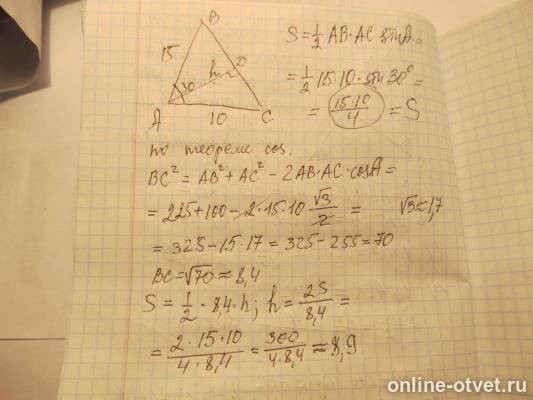 B
15
h
D
30
A
10
C
S = 1/2 AB·AC sinA =
= 1/2 15·10·sin 30° =
= 15·10/4 = S
по теореме cos.
BC² = AB² + AC² − 2AB·AC·cosA =
= 225+100 − 2·15·10 √3/2 = √3≈1,7
= 325−15·17 = 325−255=70
BC=√70 ≈ 8,4
S = 1/2 · 8,4·h; h = 2S/8,4 =
= 2·15·10/4·8,4 = 300/4·8,4 ≈ 8,9
online-otvet.ru